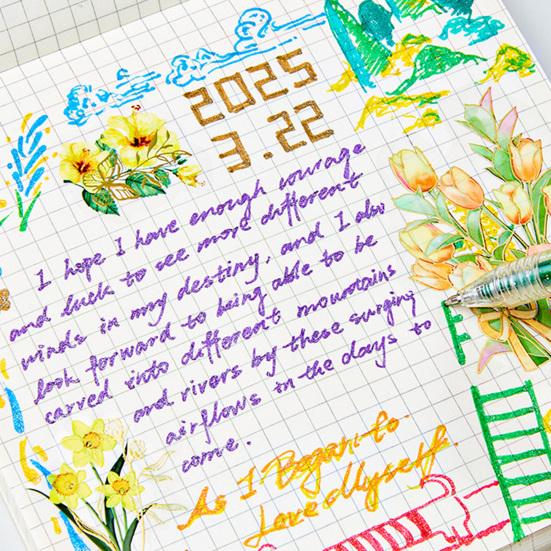 2025
3.22
I hope I have enough courage
and luck to see more different
winds in my destiny, and I also
look forward to being able to be
carved into different mountains
and rivers by these surging
airflows in the days to
come.
As I Began to
Love Myself.